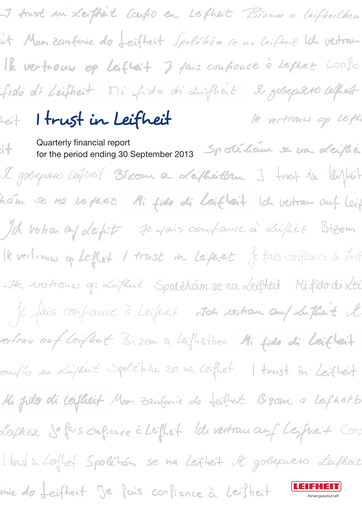 I trust in Leifheit Confío en Leifheit Bízom a Leifheitben
it Mam zaufanie do Leifheit Spoléhám se na Leifheit Ich vertrau
Ik vertrouw op Leifheit Je fais confiance à Leifheit Confío
fido di Leifheit Mi fido di Leifheit Я доверяю Leifheit
heit I trust in Leifheit Ik vertrouw op Leifheit
Quarterly financial report
for the period ending 30 September 2013 Spoléhám se na Leifheit
Я доверяю Leifheit Bízom a Leifheitben I trust in Leifheit
hám se na Leifheit Mi fido di Leifheit Ich vertrau auf Leif
Ich vertrau auf Leifheit Je fais confiance à Leifheit Bízom
Ik vertrouw op Leifheit I trust in Leifheit Je fais confiance à Leif
Ik vertrouw op Leifheit Spoléhám se na Leifheit Mi fido di Leif
Je fais confiance à Leifheit Ich vertrau auf Leifheit Я
vertrau auf Leifheit Bízom a Leifheitben Mi fido di Leifheit
onfío en Leifheit Spoléhám se na Leifheit I trust in Leifheit
Mi fido di Leifheit Mam zaufanie do Leifheit Bízom a Leifheitb
Leifheit Je fais confiance à Leifheit Ich vertrau auf Leifheit Con
I trust in Leifheit Spoléhám se na Leifheit Я доверяю Leifheit
anie do Leifheit Je fais confiance à Leifheit
LEIFHEIT
Aktiengesellschaft